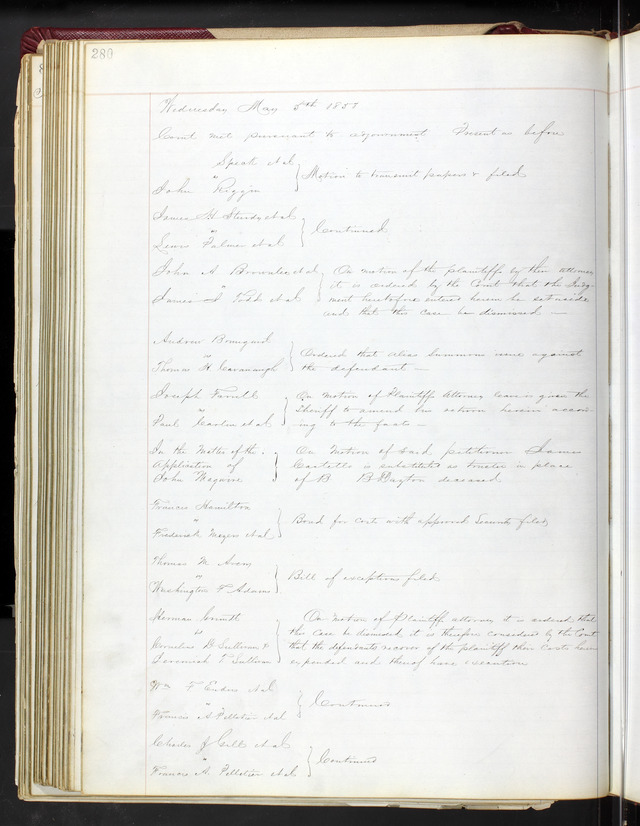 280
Wednesday May 5th 1857
Court met pursuant to adjournment Present as before
Speak et al
vs
John Riggin
Motion to transmit papers & filed
James H et al
vs
Lewis Palmer et al
Continued
John A. Brownlee et al
vs
James S Todd et al
On motion of the plaintiffs by their attorney
it is ordered by the Court that the Judg-
ment heretofore entered herein be set aside
and that this case be dismissed —
Andrew
vs
Thomas H Cavanaugh
Ordered that alias Summons issue against
the defendant —
Joseph Farrell
vs
Paul et al
On motion of Plaintiffs Attorney leave is given the
Sheriff to amend his return herein accord-
ing to the facts —
In the Matter of the
Application of
John Maguire
On Motion of said petitioner James
Castello is substituted as trustee in place
of B B Dayton deceased
Francis Hamilton
vs
Frederick Meyers et al
Bond for costs with approved Security filed
Thomas M. Avery
vs
Washington F Adams
Bill of exceptions filed
Herman
vs
Cornelius D Sullivan &
Jeremiah T Sullivan
On Motion of Plaintiff attorney it is ordered that
this Case be dismissed it is therefore considered by the Court
that the defendants recover of the plaintiff their Costs herein
expended and thereof have execution
Wm F Enders et al
vs
Francis A Pelletier et al
Continued
Charles J Gill et al
vs
Francis A. Pelletier et al
Continued